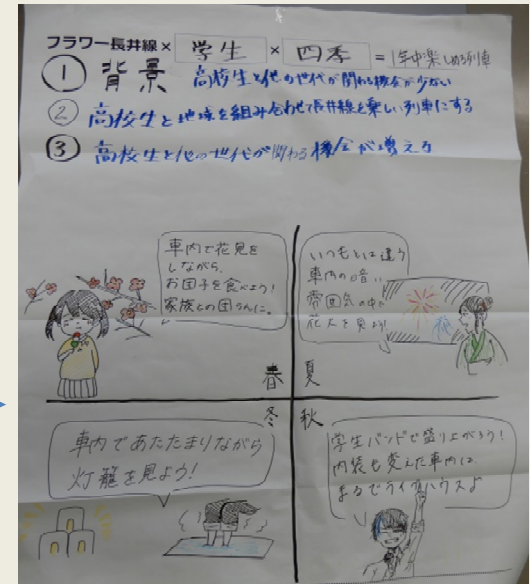 フラワー長井線× 学生 × 四季 = 1年中楽しめる列車
① 背景 高校生と他の世代が関わる機会が少ない
② 高校生と地域を組み合わせて長井線を楽しい列車にする
③ 高校生と他の世代が関わる機会が増える
車内で花見を
しながら、
お団子を食べよう!
家族との団らんに。
春
いつもとは違う
車内の暗い
雰囲気の中で
花火を見よう!
夏
冬
車内であたたまりながら
灯籠を見よう!
秋
学生バンドで盛り上がろう!
内装も変えた車内は
まるでライブハウスよ